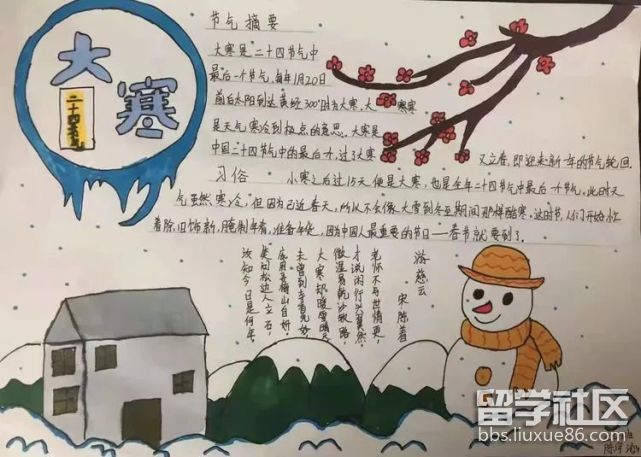 大寒
二十四节气
节气摘要
大寒是"二十四节气中
最后一个节气，每年1月20日
前后太阳到达黄经300°时为大寒，大寒寒
是天气寒冷到极点的意思。大寒是
中国二十四节气中的最后一个，过了大寒
又立春，即迎来新一年的节气轮回。
习俗
小寒之后过15天便是大寒，也是全年二十四节气中最后一个节气，此时天
气虽然寒冷，但因为已近春天，所以不会像大雪到冬至期间那样酷寒。这时节，人们开始忙
着除旧饰新，腌制年肴，准备年货，因为中国人最重要的节日——春节就要到了。
游慈云
宋 陈著
老怀不与世情更，
才说闲行兴翼然。
微湿易乾沙软路，
大寒却暖雪晴天。
未曾到寺香先妙，
底用寻梅山自
美问松边人立石，
汝知今日是何年。
留学社区
bbs.liuxue86.com